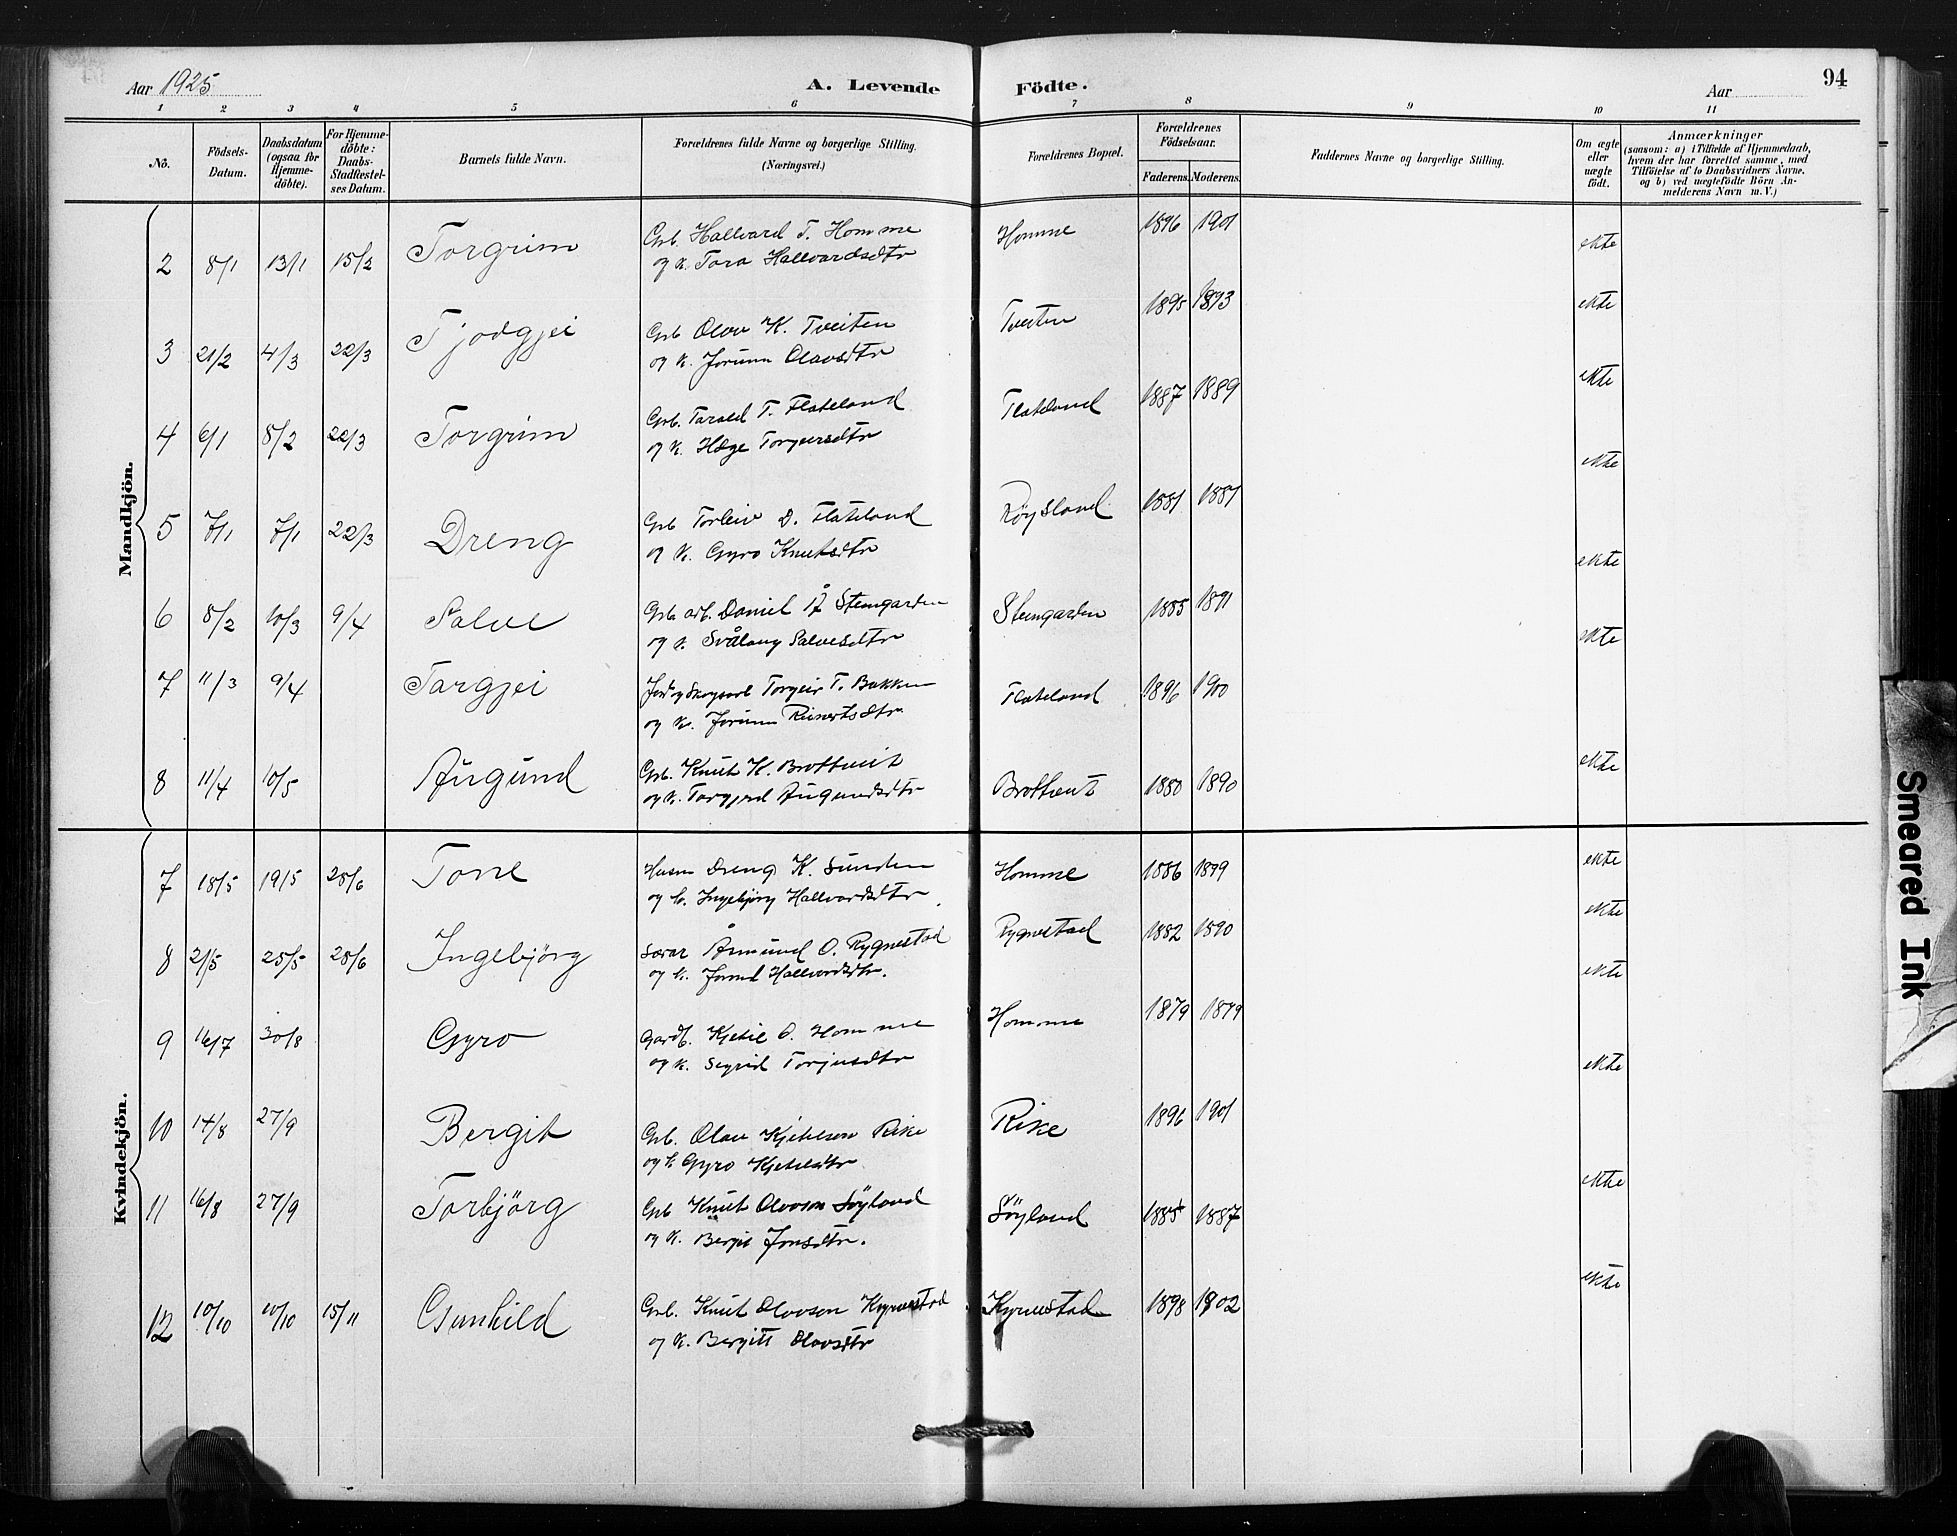 Aar 1925
A. Levende Födte.
Aar
94
1 2 3 4 5 6 7 8 9 10 11
Nö.
Födsels-Datum.
Daabsdatum (ogsaa for Hjemme-döbte).
For Hjemme-döbte: Daabs-Stadfæstel-ses Datum.
Barnets fulde Navn.
Forældrenes fulde Navne og borgerlige Stilling. (Næringsvei.)
Forældrenes Bopæl.
Forældrenes Födselsaar.
Faderens. Moderens.
Faddernes Navne og borgerlige Stilling.
Om ægte eller uægte födt.
Anmærkninger
(saasom: a) i Tilfælde af Hjemmedaab,
hvem der har forrettet samme, med
Tilföielse af to Daabsvidners Navne,
og b) ved uægtefödte Börn An-
melderens Navn m. V.)
Mandkjön.
2 8/1 13/1 15/2 Torgrim Grb. Hallvard T. Homme Homme 1896 1901 ekte
og k. Tora Hallvardsdtr
3 21/2 4/3 22/3 Tjodgjei Grb Olav K. Tveiten Tveiten 1895 1893 ekte
og k. Jorunn Olavsdtr
4 6/1 8/2 22/3 Torgrim Grb. Tarald T. Flateland Flateland 1887 1889 ekte
og k. Hæge Torgeirsdtr
5 7/1 7/1 22/3 Dreng Grb Torleiv D. Flateland Röysland 1881 1881 ekte
og k. Gyro Knutsdtr
6 8/2 10/3 9/4 Salve Grb arb. Daniel Å Steingarden Steingarden 1885 1891 ekte
og k. Svålaug Salvesdtr
7 11/3 9/4 Targjei Jord og Skogsarb Torgeir T. Bakken Flateland 1896 1900 ekte
og k. Jorunn Reiertsdtr
8 11/4 10/5 Augund Grb. Knut K. Brottveit Brottveit 1880 1890 ekte
og k. Torgjerd Augundsdtr
Kvindekjön.
7 18/5 19/5 28/6 Tone Husm Dreng K. Sunden Homme 1886 1899 ekte
og k. Ingebjörg Hallvardsdtr
8 2/5 25/5 28/6 Ingebjörg Åmund O. Rygnestad Rygnestad 1882 1890 ekte
og k. Hallvardsdtr.
ekte
9 16/7 30/8 Gyro Gardb. Kjetil O. Homme Homme 1879 1879 ekte
og k. Sigrid Torjusdtr
10 14/8 27/9 Bergit Grb. Olav Kjetilson Rike Rike 1896 1901
og k Gyro Kjetilsdtr
11 16/8 27/9 Torbjörg Grb Knut Olavson Söyland Söyland 1885 1887 ekte
og k. Bergit Jonsdtr.
12 10/10 10/10 15/11 Gunhild Grb. Knut Olavson Kyrvestad Kyrvestad 1898 1902 ekte
og k. Bergitt Olavsdtr
Smeared Ink